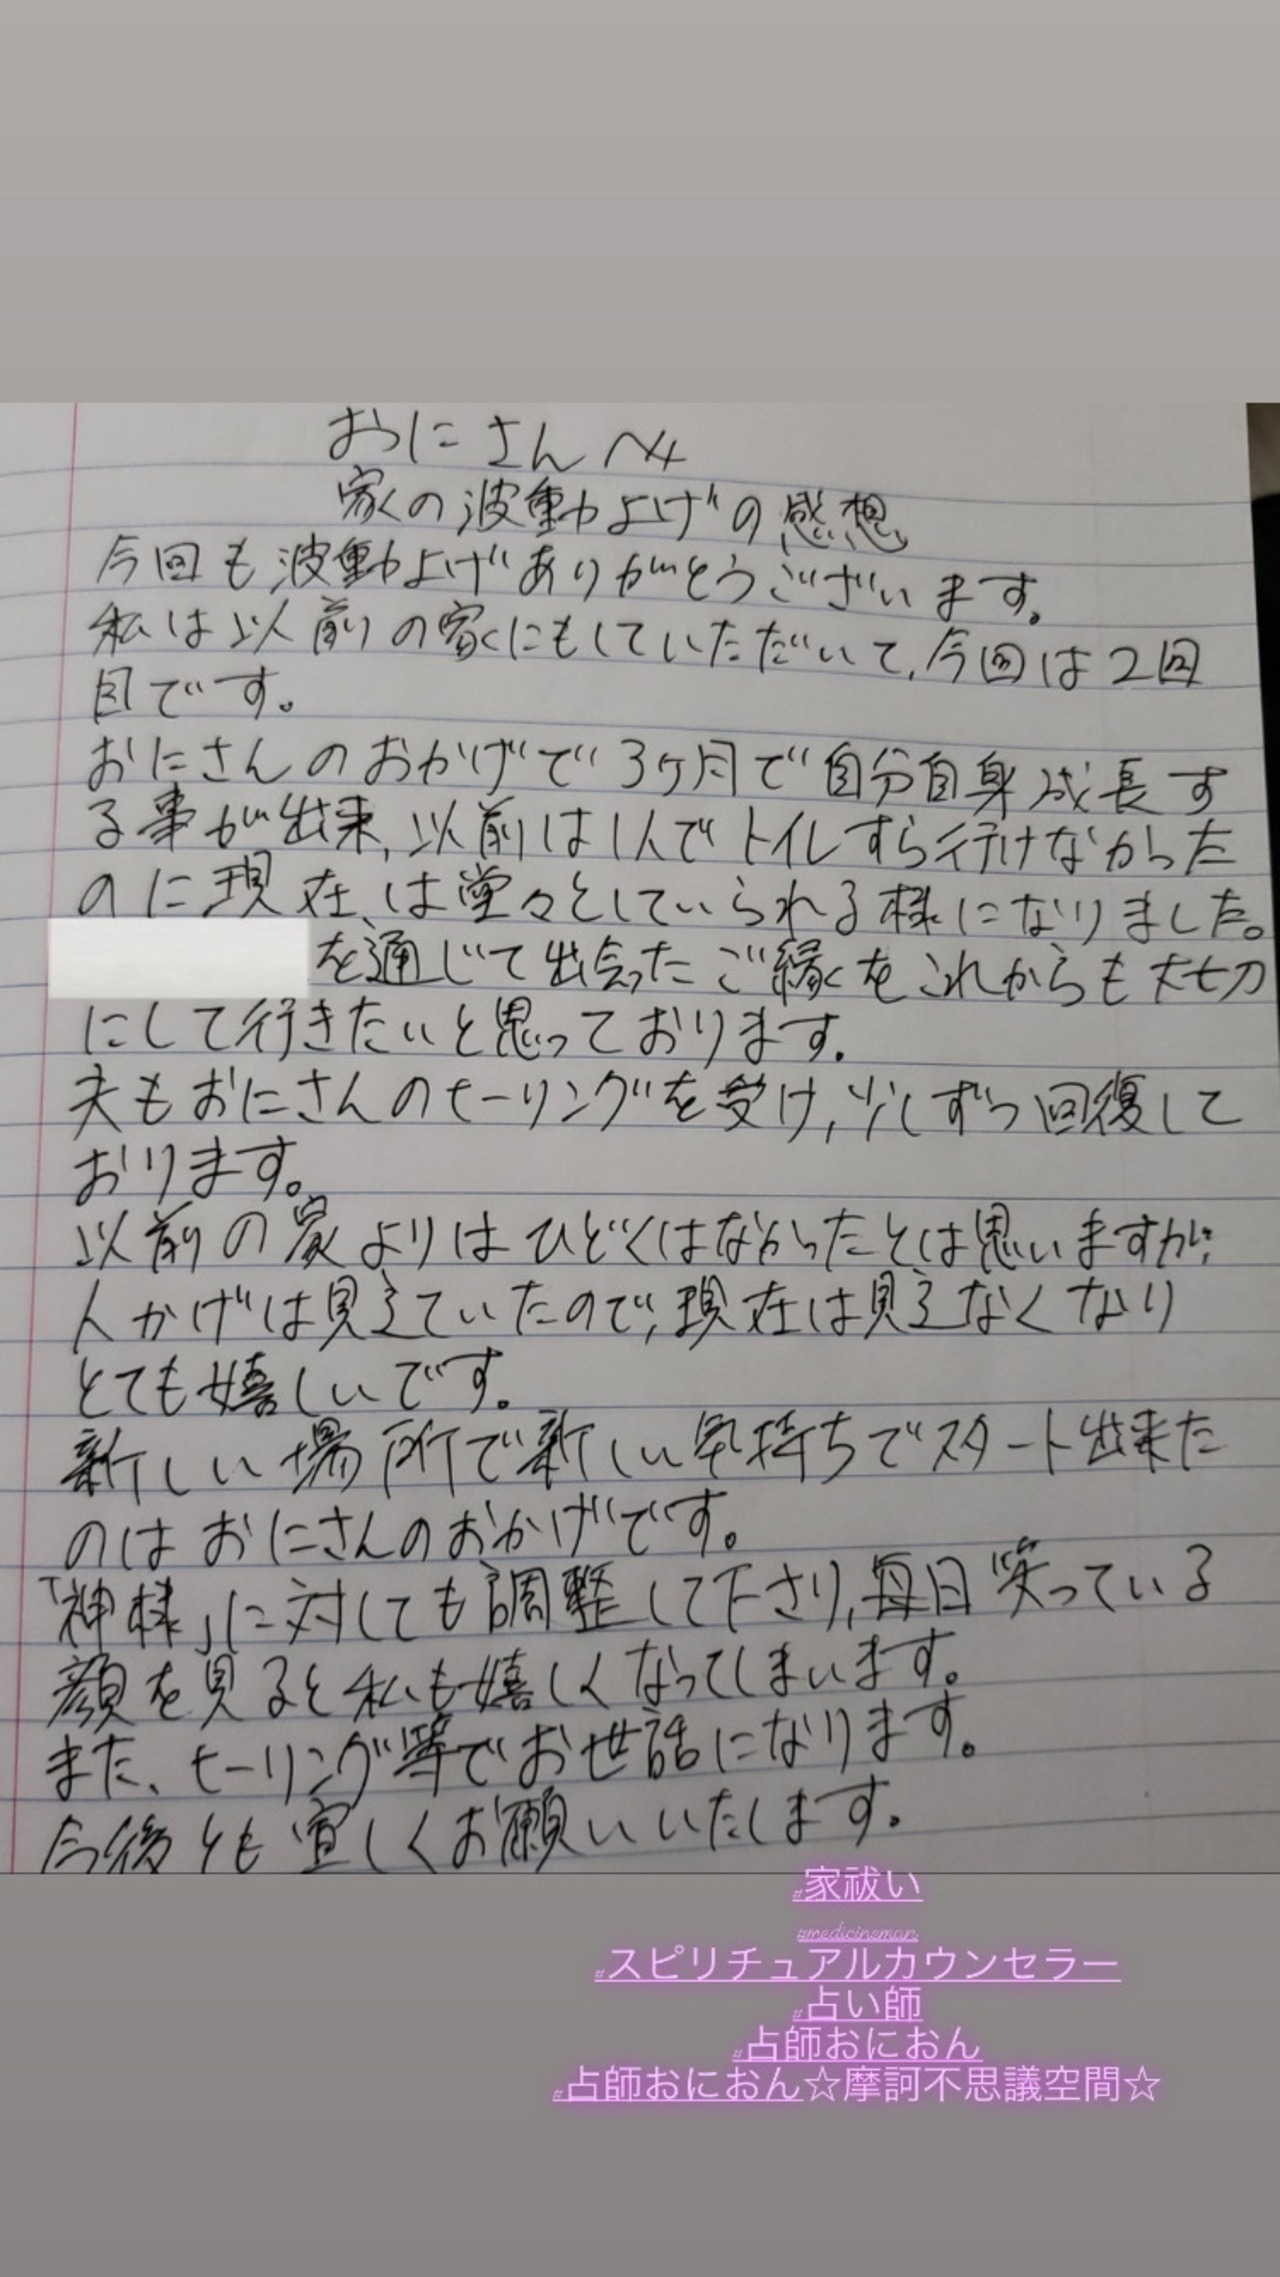 おにさんへ
家の波動上げの感想
今回も波動上げありがとうございます。
私は以前の家にもしていただいて、今回は2回
目です。
おにさんのおかげで3ヶ月で自分自身成長す
る事が出来、以前は1人でトイレすら行けなかった
のに現在は堂々としていられる様になりました。
を通じて出会ったご縁をこれからも大切
にして行きたいと思っております。
夫もおにさんのヒーリングを受け、少しずつ回復して
おります。
以前の家よりはひどくはなかったとは思いますが、
人かげは見えていたので、現在は見えなくなり
とても嬉しいです。
新しい場所で新しい気持ちでスタート出来た
のはおにさんのおかげです。
「神様」に対しても調整して下さり、毎日笑っている
顔を見ると私も嬉しくなってしまいます。
また、ヒーリング等でお世話になります。
今後とも宜しくお願いいたします。
#家祓い
#medicineman
#スピリチュアルカウンセラー
#占い師
#占師おにおん
#占師おにおん☆摩訶不思議空間☆